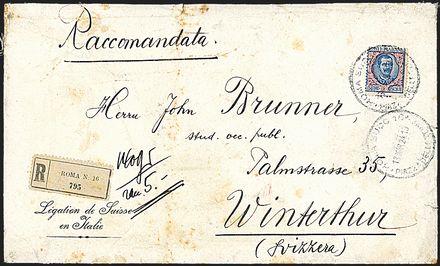 Raccomandata.
Herrn John Brunner,
stud. oec. publ.
Palmstrasse 35,
Winterthur
(Svizzera)
R
ROMA N. 16
795
Légation de Suisse
en Italie